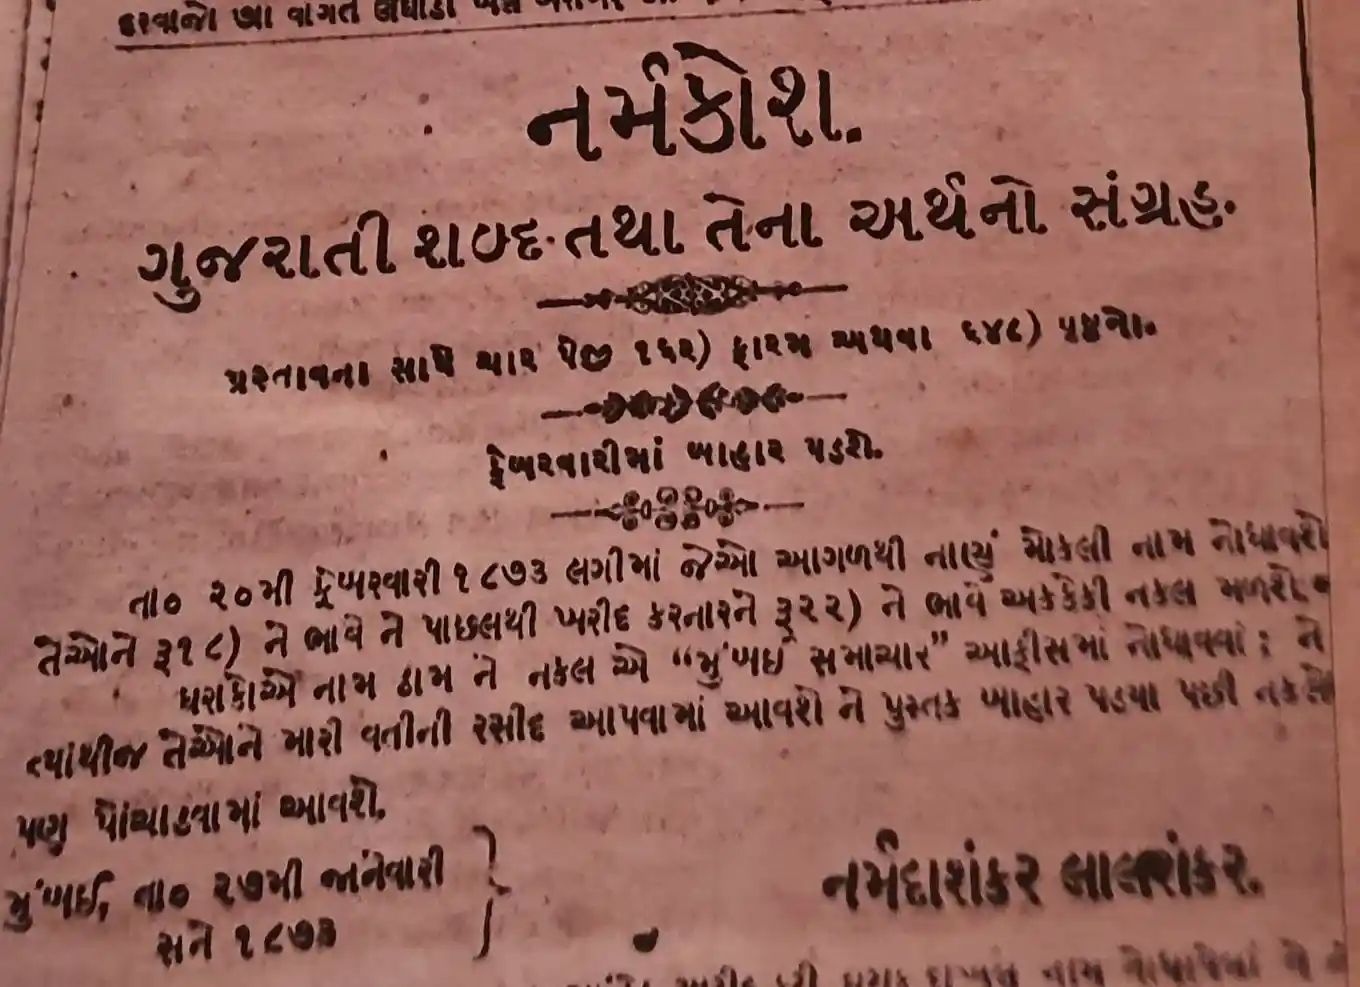 દરવાજો આ વાગતે
નર્મકોશ.
ગુજરાતી શબ્દ તથા તેના અર્થનો સંગ્રહ.
પ્રસ્તાવના સાથે ચાર પેજી ૧૬૨) ફારમ અથવા ૬૪૮) પૃષ્ઠનો.
ફેબરવારીમાં બાહાર પડશે.
તા૦ ૨૦મી ફેબરવારી ૧૮૭૩ લગીમાં જેઓ આગળથી નાણું મોકલી નામ નોધાવશે
તેઓને રૂ૧૮) ને ભાવે ને પાછલથી ખરીદ કરનારને રૂ૨૨) ને ભાવે અકકેકી નકલ મળશે.
ઘરાકોએ નામ ઠામ ને નકલ એ “મુંબઈ સમાચાર” આફીસમાં નોધાવવાં; ને
ત્યાંથીજ તેઓને મારી વતીની રસીદ આપવામાં આવશે ને પુસ્તક બાહાર પડયા પછી નકલો
પણ પોંચાડવામાં આવશે.
મુંબઈ, તા૦ ૨૭મી જાંનેવારી
સને ૧૮૭૩
નર્મદાશંકર લાલશંકર.